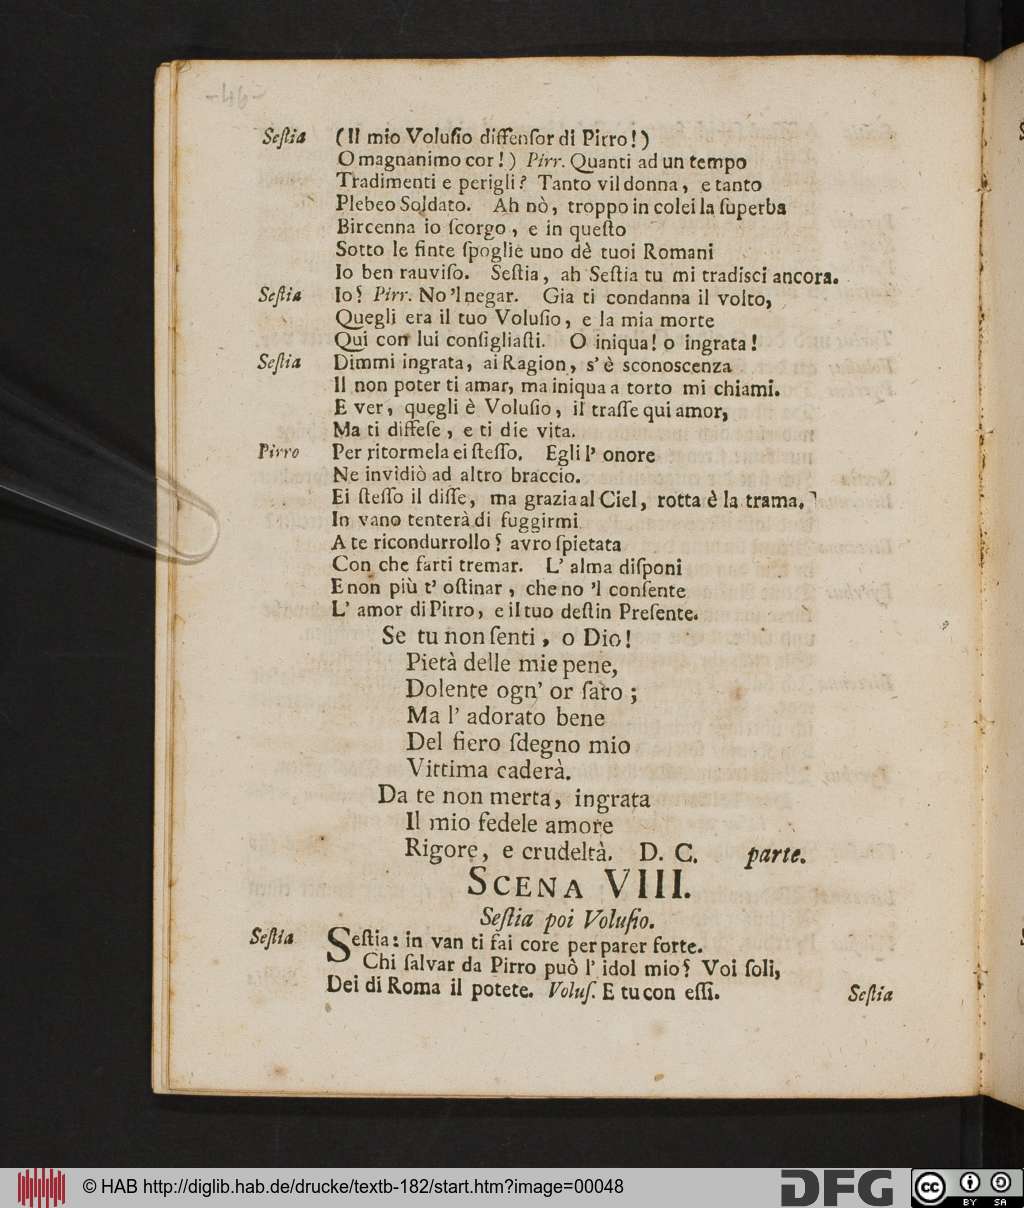 -46-
Seſtia (Il mio Voluſio diffenſor di Pirro!)
O magnanimo cor!) Pirr. Quanti ad un tempo
Tradimenti e perigli? Tanto vil donna, e tanto
Plebeo Soldato. Ah nò, troppo in colei la ſuperba
Bircenna io ſcorgo, e in queſto
Sotto le finte ſpoglie uno dè tuoi Romani
Io ben rauviſo. Seſtia, ah Seſtia tu mi tradisci ancora.
Seſtia Io? Pirr. No 'l negar. Gia ti condanna il volto,
Quegli era il tuo Voluſio, e la mia morte
Qui con lui conſigliaſti. O iniqua! o ingrata!
Seſtia Dimmi ingrata, ai Ragion, s' è sconoscenza
Il non poter ti amar, ma iniqua a torto mi chiami.
E ver, quegli è Voluſio, il traſſe qui amor,
Ma ti diffeſe, e ti die vita.
Pirro Per ritormela ei ſteſſo. Egli l' onore
Ne invidiò ad altro braccio.
Ei ſteſſo il diſſe, ma grazia al Ciel, rotta è la trama.
In vano tenterà di fuggirmi
A te ricondurrollo? avro ſpietata
Con che farti tremar. L' alma diſponi
E non più t' oſtinar, che no 'l conſente
L' amor di Pirro, e il tuo deſtin Preſente.
Se tu non ſenti, o Dio!
Pietà delle mie pene,
Dolente ogn' or ſarò;
Ma l' adorato bene
Del fiero ſdegno mio
Vittima caderà.
Da te non merta, ingrata
Il mio fedele amore
Rigore, e crudeltà. D. C. parte.
SCENA VIII.
Seſtia poi Voluſio.
Seſtia Seſtia: in van ti fai core per parer forte.
Chi ſalvar da Pirro può l' idol mio? Voi ſoli,
Dei di Roma il potete. Voluſ. E tu con eſſi.
Seſtia
© HAB http://diglib.hab.de/drucke/textb-182/start.htm?image=00048
DFG
cc BY SA